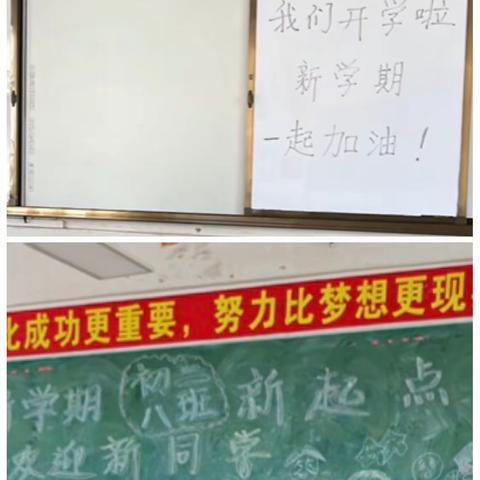 我们开学啦
新学期
一起加油！
比成功更重要，努力比梦想更现
新学期 初二八班 新起点
欢迎新同学